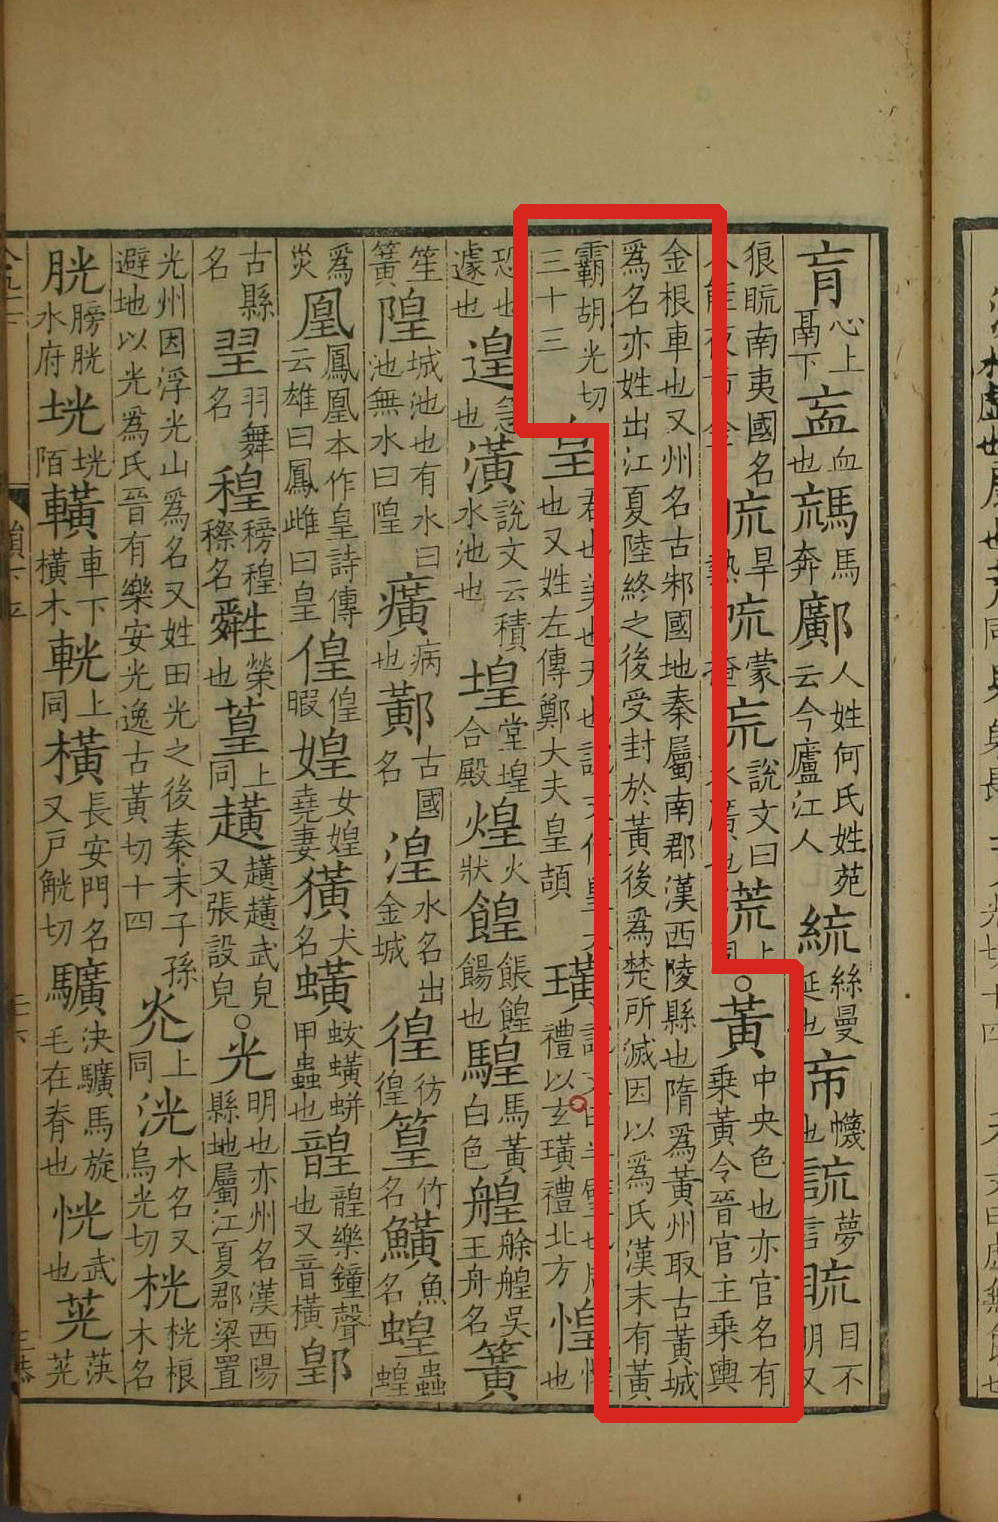 肓心上鬲下衁血也馬奔鄺人姓何氏姓苑云今廬江人絲曼延也幭也詤夢言䀮目不明又
狼䀮南夷國名人能夜市金旱熱蒙掩巟說文曰水廣也㡃上同○黃中央色也亦官名有乘黃令晉官主乘輿
金根車也又州名古邾國地秦屬南郡漢西陵縣也隋爲黃州取古黃城爲名亦姓出江夏陸終之後受封於黃後爲楚所滅因以爲氏漢末有黃
霸胡光切三十三皇君也美也天也說文作皇大也又姓左傳鄭大夫皇頡璜說文曰半璧也周禮以玄璜禮北方惶惶也
恐也遽也遑急也潢說文云積水池也堭堂堭合殿煌火狀餭餦餭餳也騜馬黃白色艎艅艎吳王舟名簧
笙簧隍城池也有水曰池無水曰隍癀病也鄺古國名湟水名出金城徨彷徨篁竹名鱑魚名蝗蟲蝗
爲災凰鳳凰本作皇詩傳云雄曰鳳雌曰皇偟偟暇媓女媓堯妻獚犬名蟥蛂蟥蛢甲蟲也韹韹樂鐘聲也又音橫鄓
古縣名䍿羽舞名䅣䅭䅣穄名䑟榮也葟上同趪趪趪武皃又張設皃○光明也亦州名漢西陽縣地屬江夏郡梁置
光州因浮光山爲名又姓田光之後秦末子孫避地以光爲氏晉有樂安光逸古黃切十四灮上同洸水名又烏光切桄桄桹木名
胱膀胱水府垙垙陌䡽車下橫木輄上同橫長安門名又戶觥切驥決驥馬旋毛在脊也恍武也茪茪芵